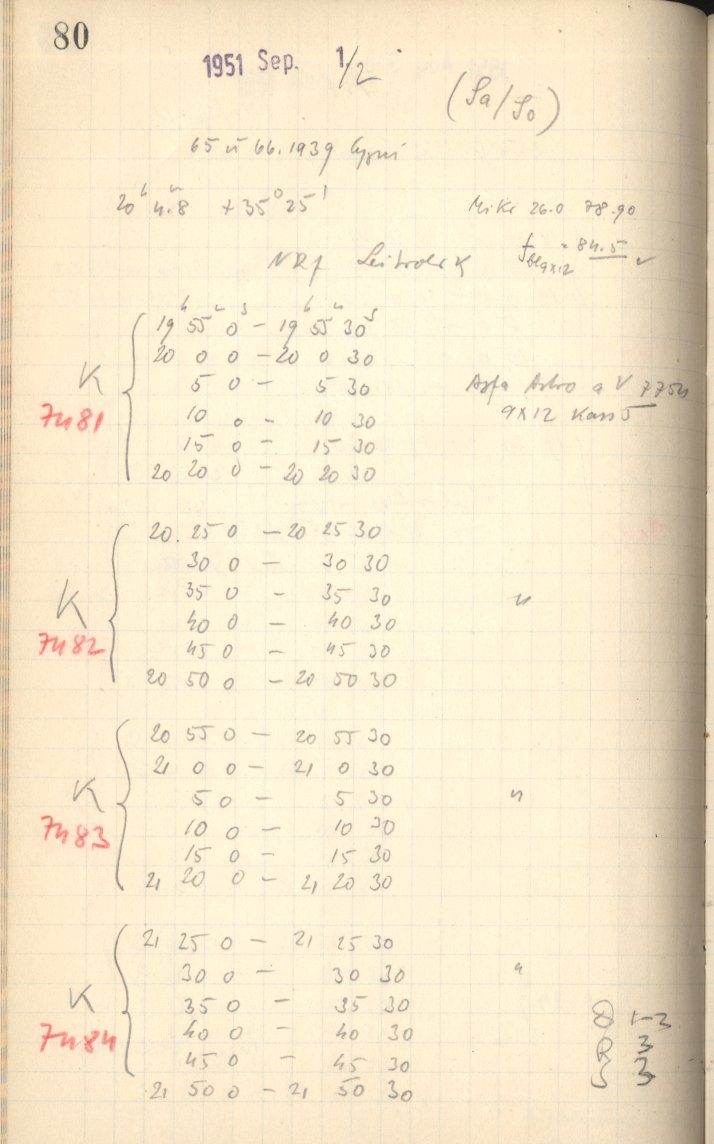 80
1951 Sep. 1/2
(Sa/So)
65 u 66.1939 Cygni
20h 4m.8 + 35° 25'
Mikr 26.0 78.90
f = 84.5
9x12
NRf
K
7481
19h 55m 0s - 19h 55m 30s
20 0 0 - 20 0 30
5 0 - 5 30
10 0 - 10 30
15 0 - 15 30
20 20 0 - 20 20 30
Agfa Astro
9x12 Kass 5
K
7482
20 25 0 - 20 25 30
30 0 - 30 30
35 0 - 35 30
40 0 - 40 30
45 0 - 45 30
20 50 0 - 20 50 30
"
K
7483
20 55 0 - 20 55 30
21 0 0 - 21 0 30
5 0 - 5 30
10 0 - 10 30
15 0 - 15 30
21 20 0 - 21 20 30
"
K
7484
21 25 0 - 21 25 30
30 0 - 30 30
35 0 - 35 30
40 0 - 40 30
45 0 - 45 30
21 50 0 - 21 50 30
"
1-3
R 3
S 3